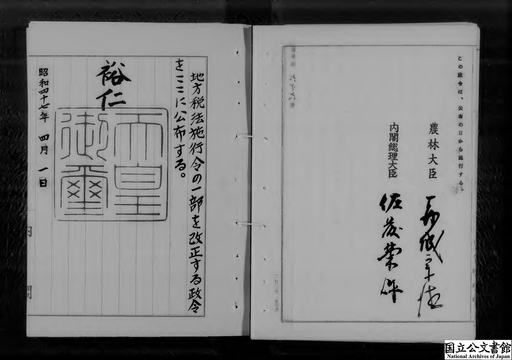 この政令は、公布の日から施行する。
農林大臣
内閣総理大臣 佐藤榮作
地方税法施行令の一部を改正する政令
をここに公布する。
裕仁
天皇御璽
昭和四十七年 四月 一日
内閣
国立公文書館
National Archives of Japan